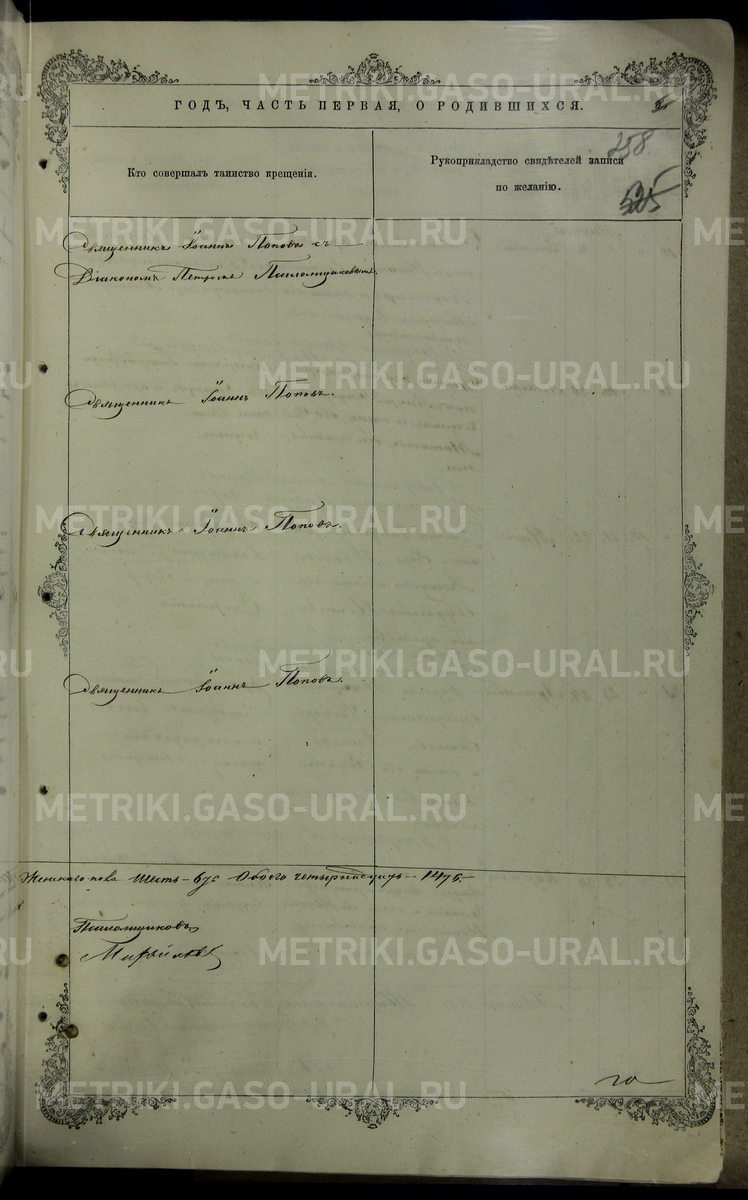 ГОДЪ, ЧАСТЬ ПЕРВАЯ, О РОДИВШИХСЯ.
5
258
525
Кто совершалъ таинство крещенія.
Рукоприкладство свидѣтелей записи
по желанію.
Священникъ Іоаннъ Поповъ съ
Діакономъ Петромъ
Священникъ Іоаннъ Поповъ.
Священникъ Іоаннъ Поповъ.
Священникъ Іоаннъ Поповъ.
Женскаго пола шесть - 6, Обоего четырнадцать - 14
METRIKI.GASO-URAL.RU